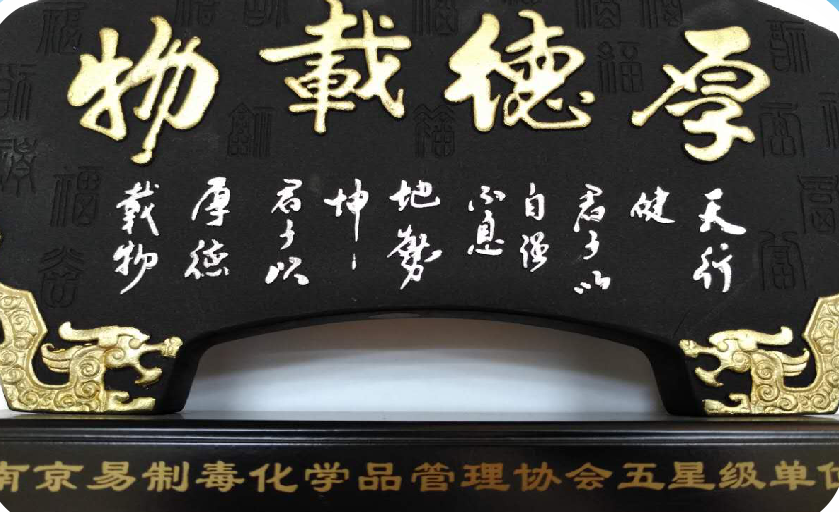 厚德載物
天行
健
君子以
自强
不息
地势
坤
君子以
厚德
載物
南京易制毒化学品管理协会五星级单位